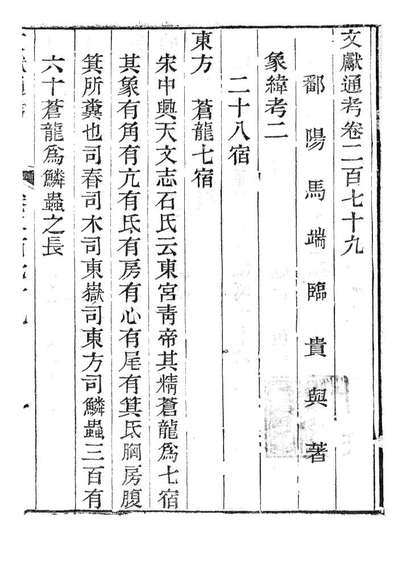 文獻通考卷二百七十九
鄱陽馬端臨貴與著
象緯考二
二十八宿
東方　蒼龍七宿
宋中興天文志石氏云東宮靑帝其精蒼龍爲七宿
其象有角有亢有氐有房有心有尾有箕氐胸房腹
箕所糞也司春司木司東嶽司東方司鱗蟲三百有
六十蒼龍爲鱗蟲之長